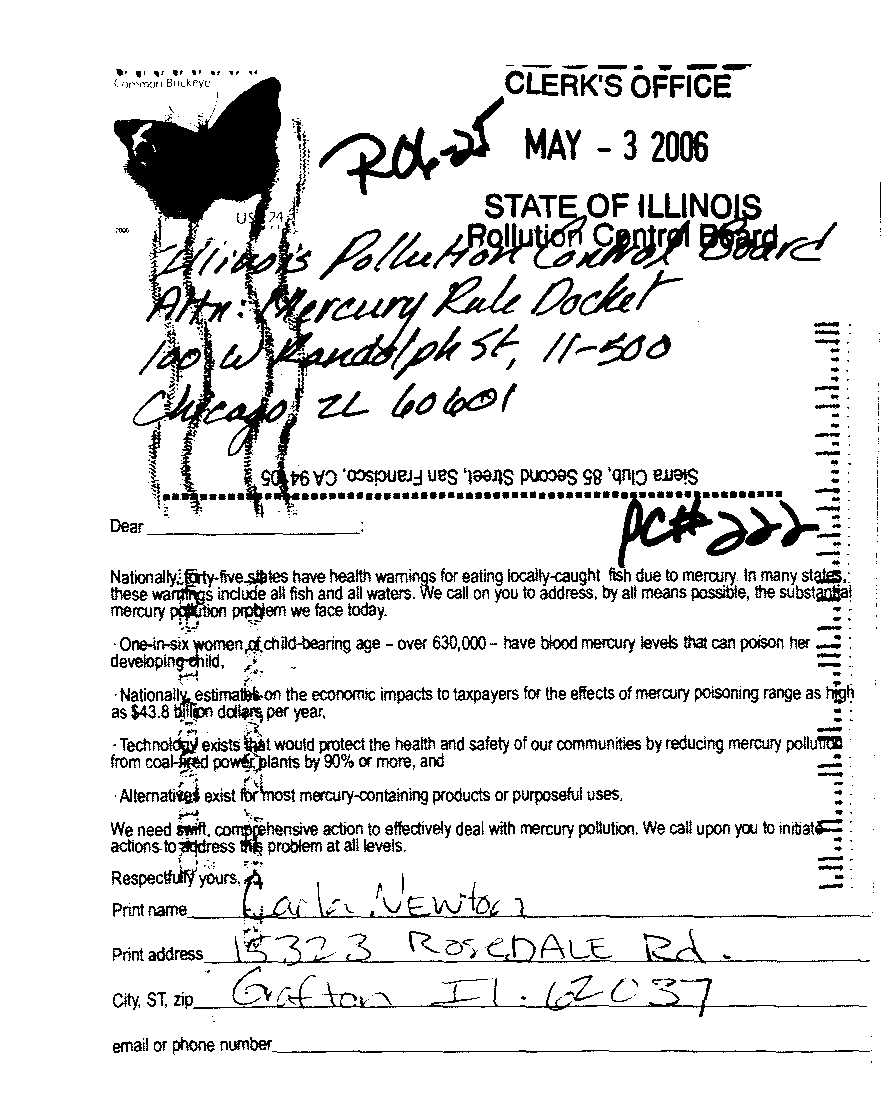 Common Buckeye
CLERK'S OFFICE
R06-25
MAY - 3 2006
US 24
STATE OF ILLINOIS
2006
Pollution Control Board
Illinois Pollution Control Board
Attn: Mercury Rule Docket
100 W Randolph St, 11-500
Chicago, IL 60601
Sierra Club, 85 Second Street, San Francisco, CA 94105
PC# 222
Dear :
Nationally, forty-five states have health warnings for eating locally-caught fish due to mercury. In many states,
these warnings include all fish and all waters. We call on you to address, by all means possible, the substantial
mercury pollution problem we face today.
· One-in-six women of child-bearing age – over 630,000 – have blood mercury levels that can poison her
developing child,
· Nationally, estimates on the economic impacts to taxpayers for the effects of mercury poisoning range as high
as $43.8 billion dollars per year,
· Technology exists that would protect the health and safety of our communities by reducing mercury pollution
from coal-fired power plants by 90% or more, and
· Alternatives exist for most mercury-containing products or purposeful uses.
We need swift, comprehensive action to effectively deal with mercury pollution. We call upon you to initiate
actions to address this problem at all levels.
Respectfully yours,
Print name Carla Newton
Print address 15323 ROSEDALE Rd.
City, ST, zip Grafton Il. 62037
email or phone number